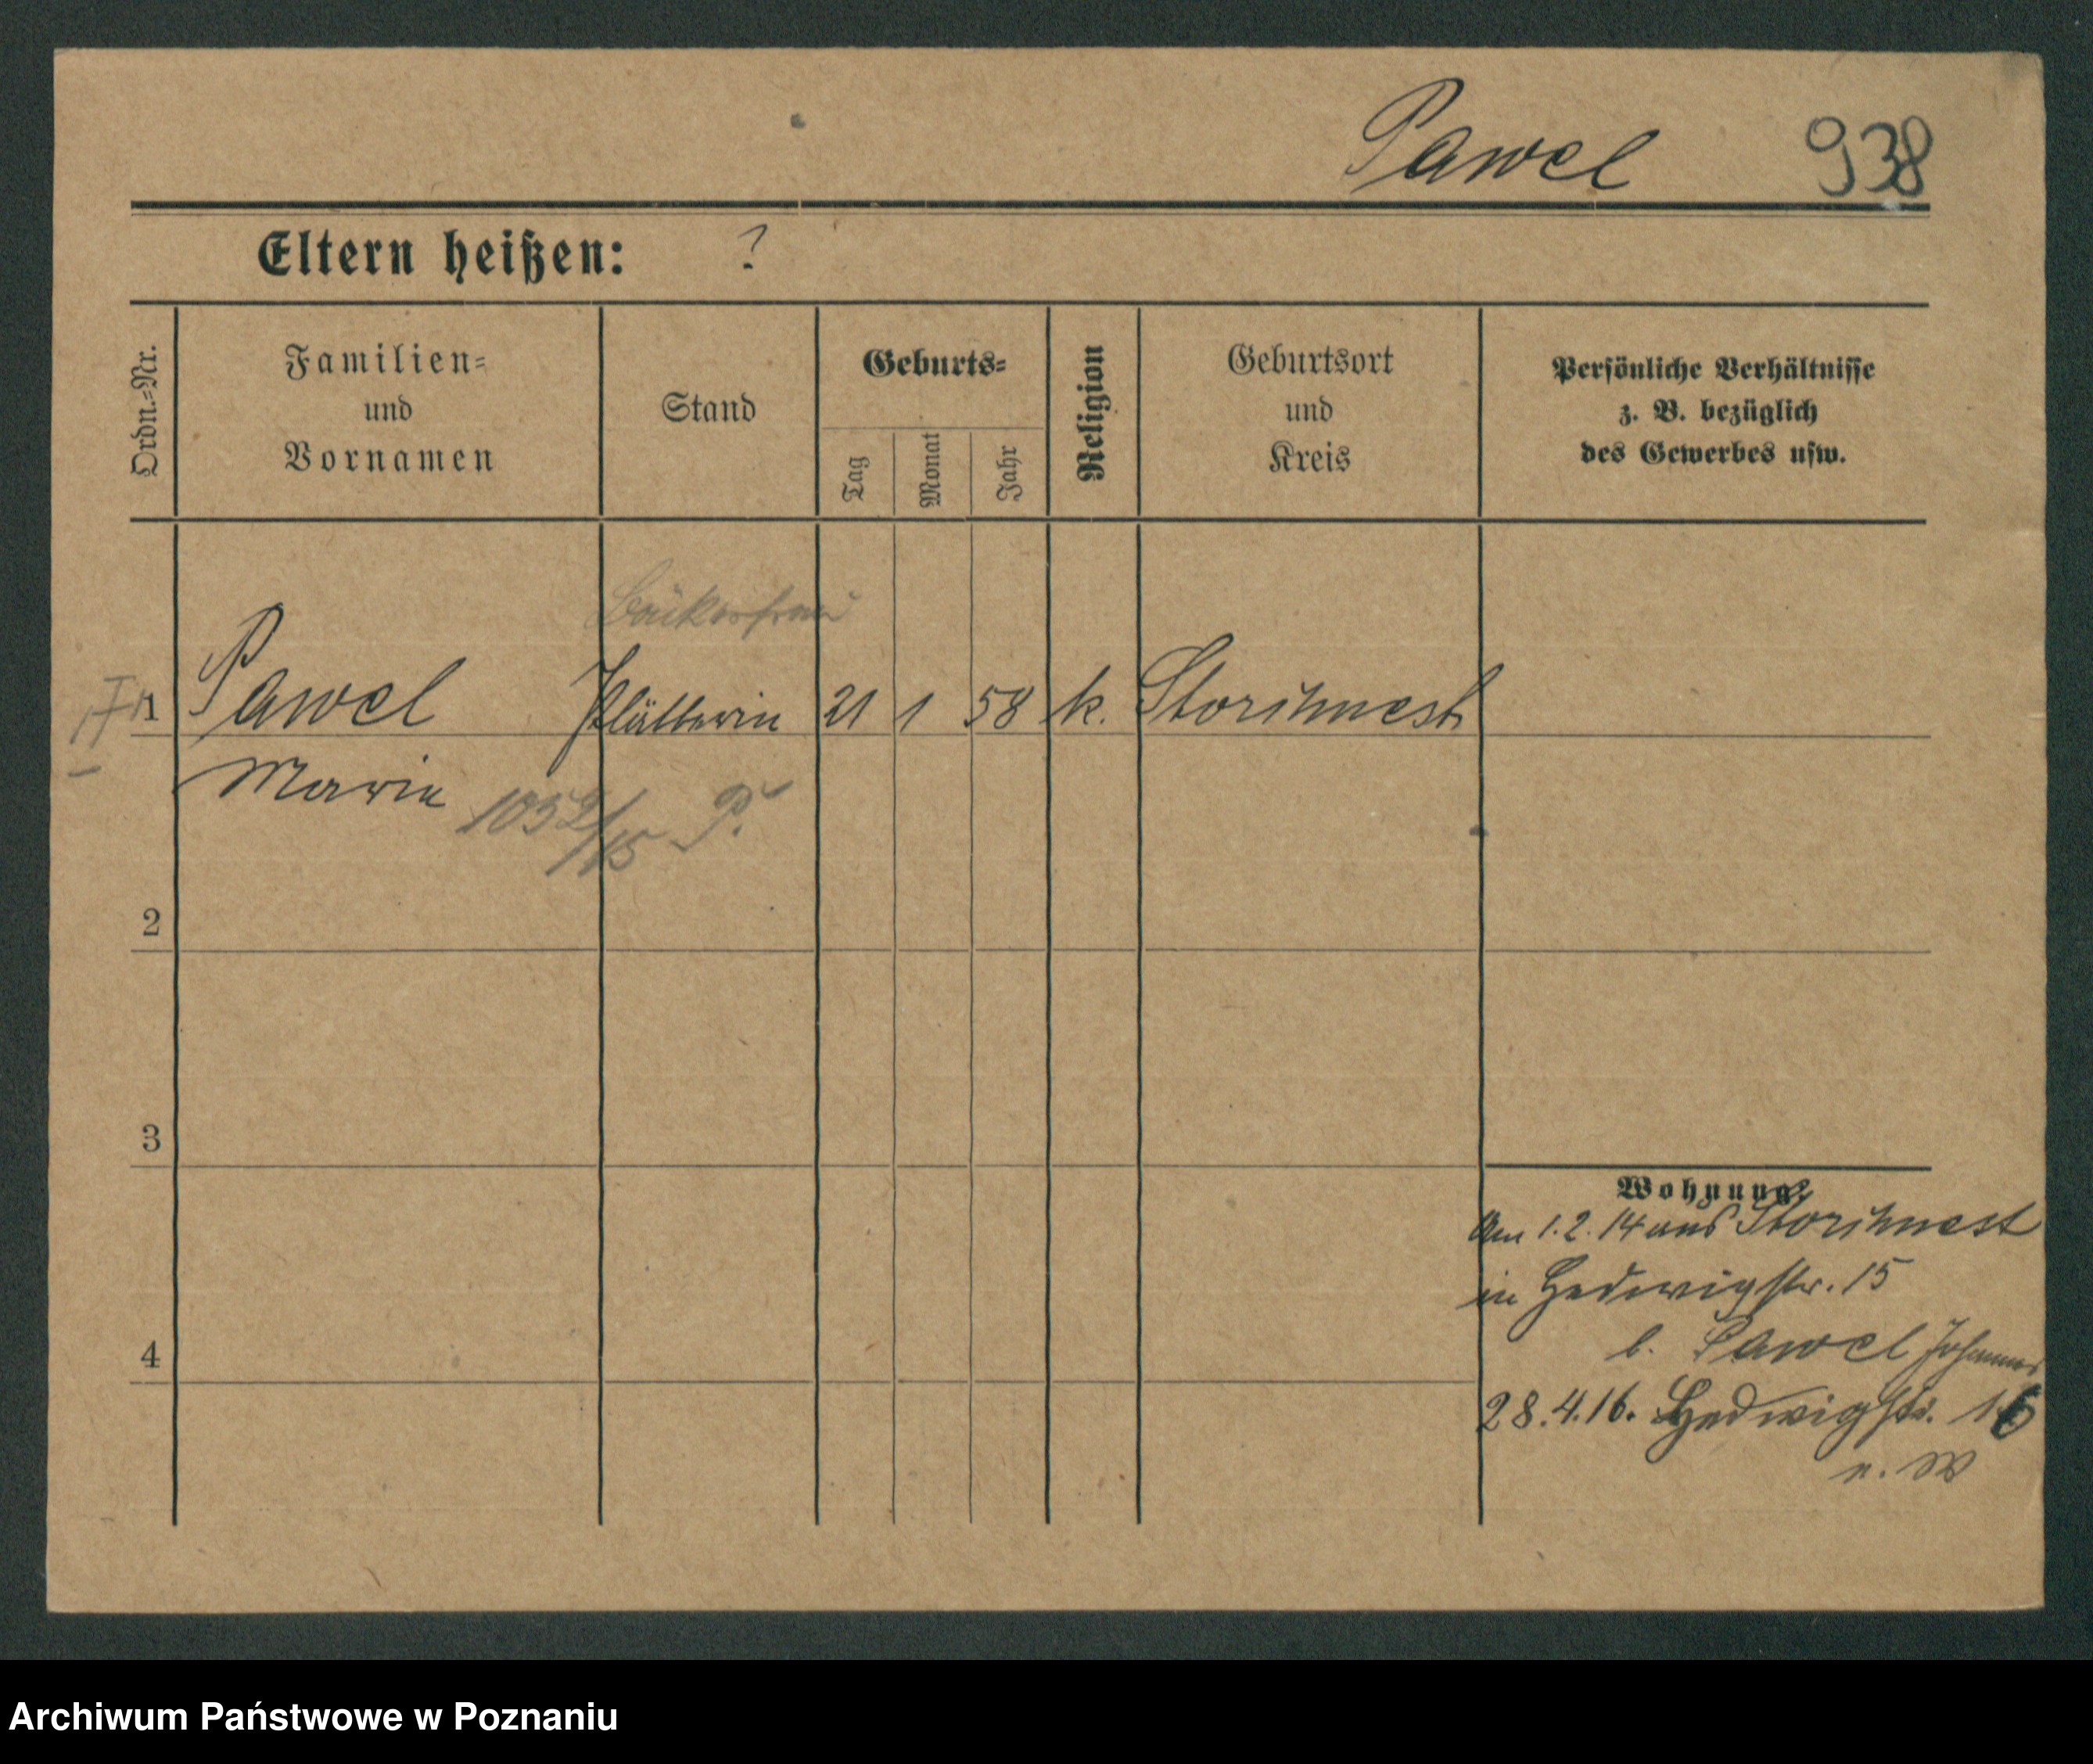 Pawel 938
Eltern heißen: ?
Ordn.-Nr.
Familien-
und
Vornamen
Stand
Geburts-
Tag
Monat
Jahr
Religion
Geburtsort
und
Kreis
Persönliche Verhältnisse
z. B. bezüglich
des Gewerbes usw.
Bäckersfrau
1 Pawel Plätterin 21 1 58 k. Storchnest
Marie 1052/15 P.
2
3
4
Wohnung
Am 1.2.14 aus Storchnest
in Hedwigstr. 15
b. Pawel Johannes
28.4.16. Hedwigstr. 16
n. W
Archiwum Państwowe w Poznaniu